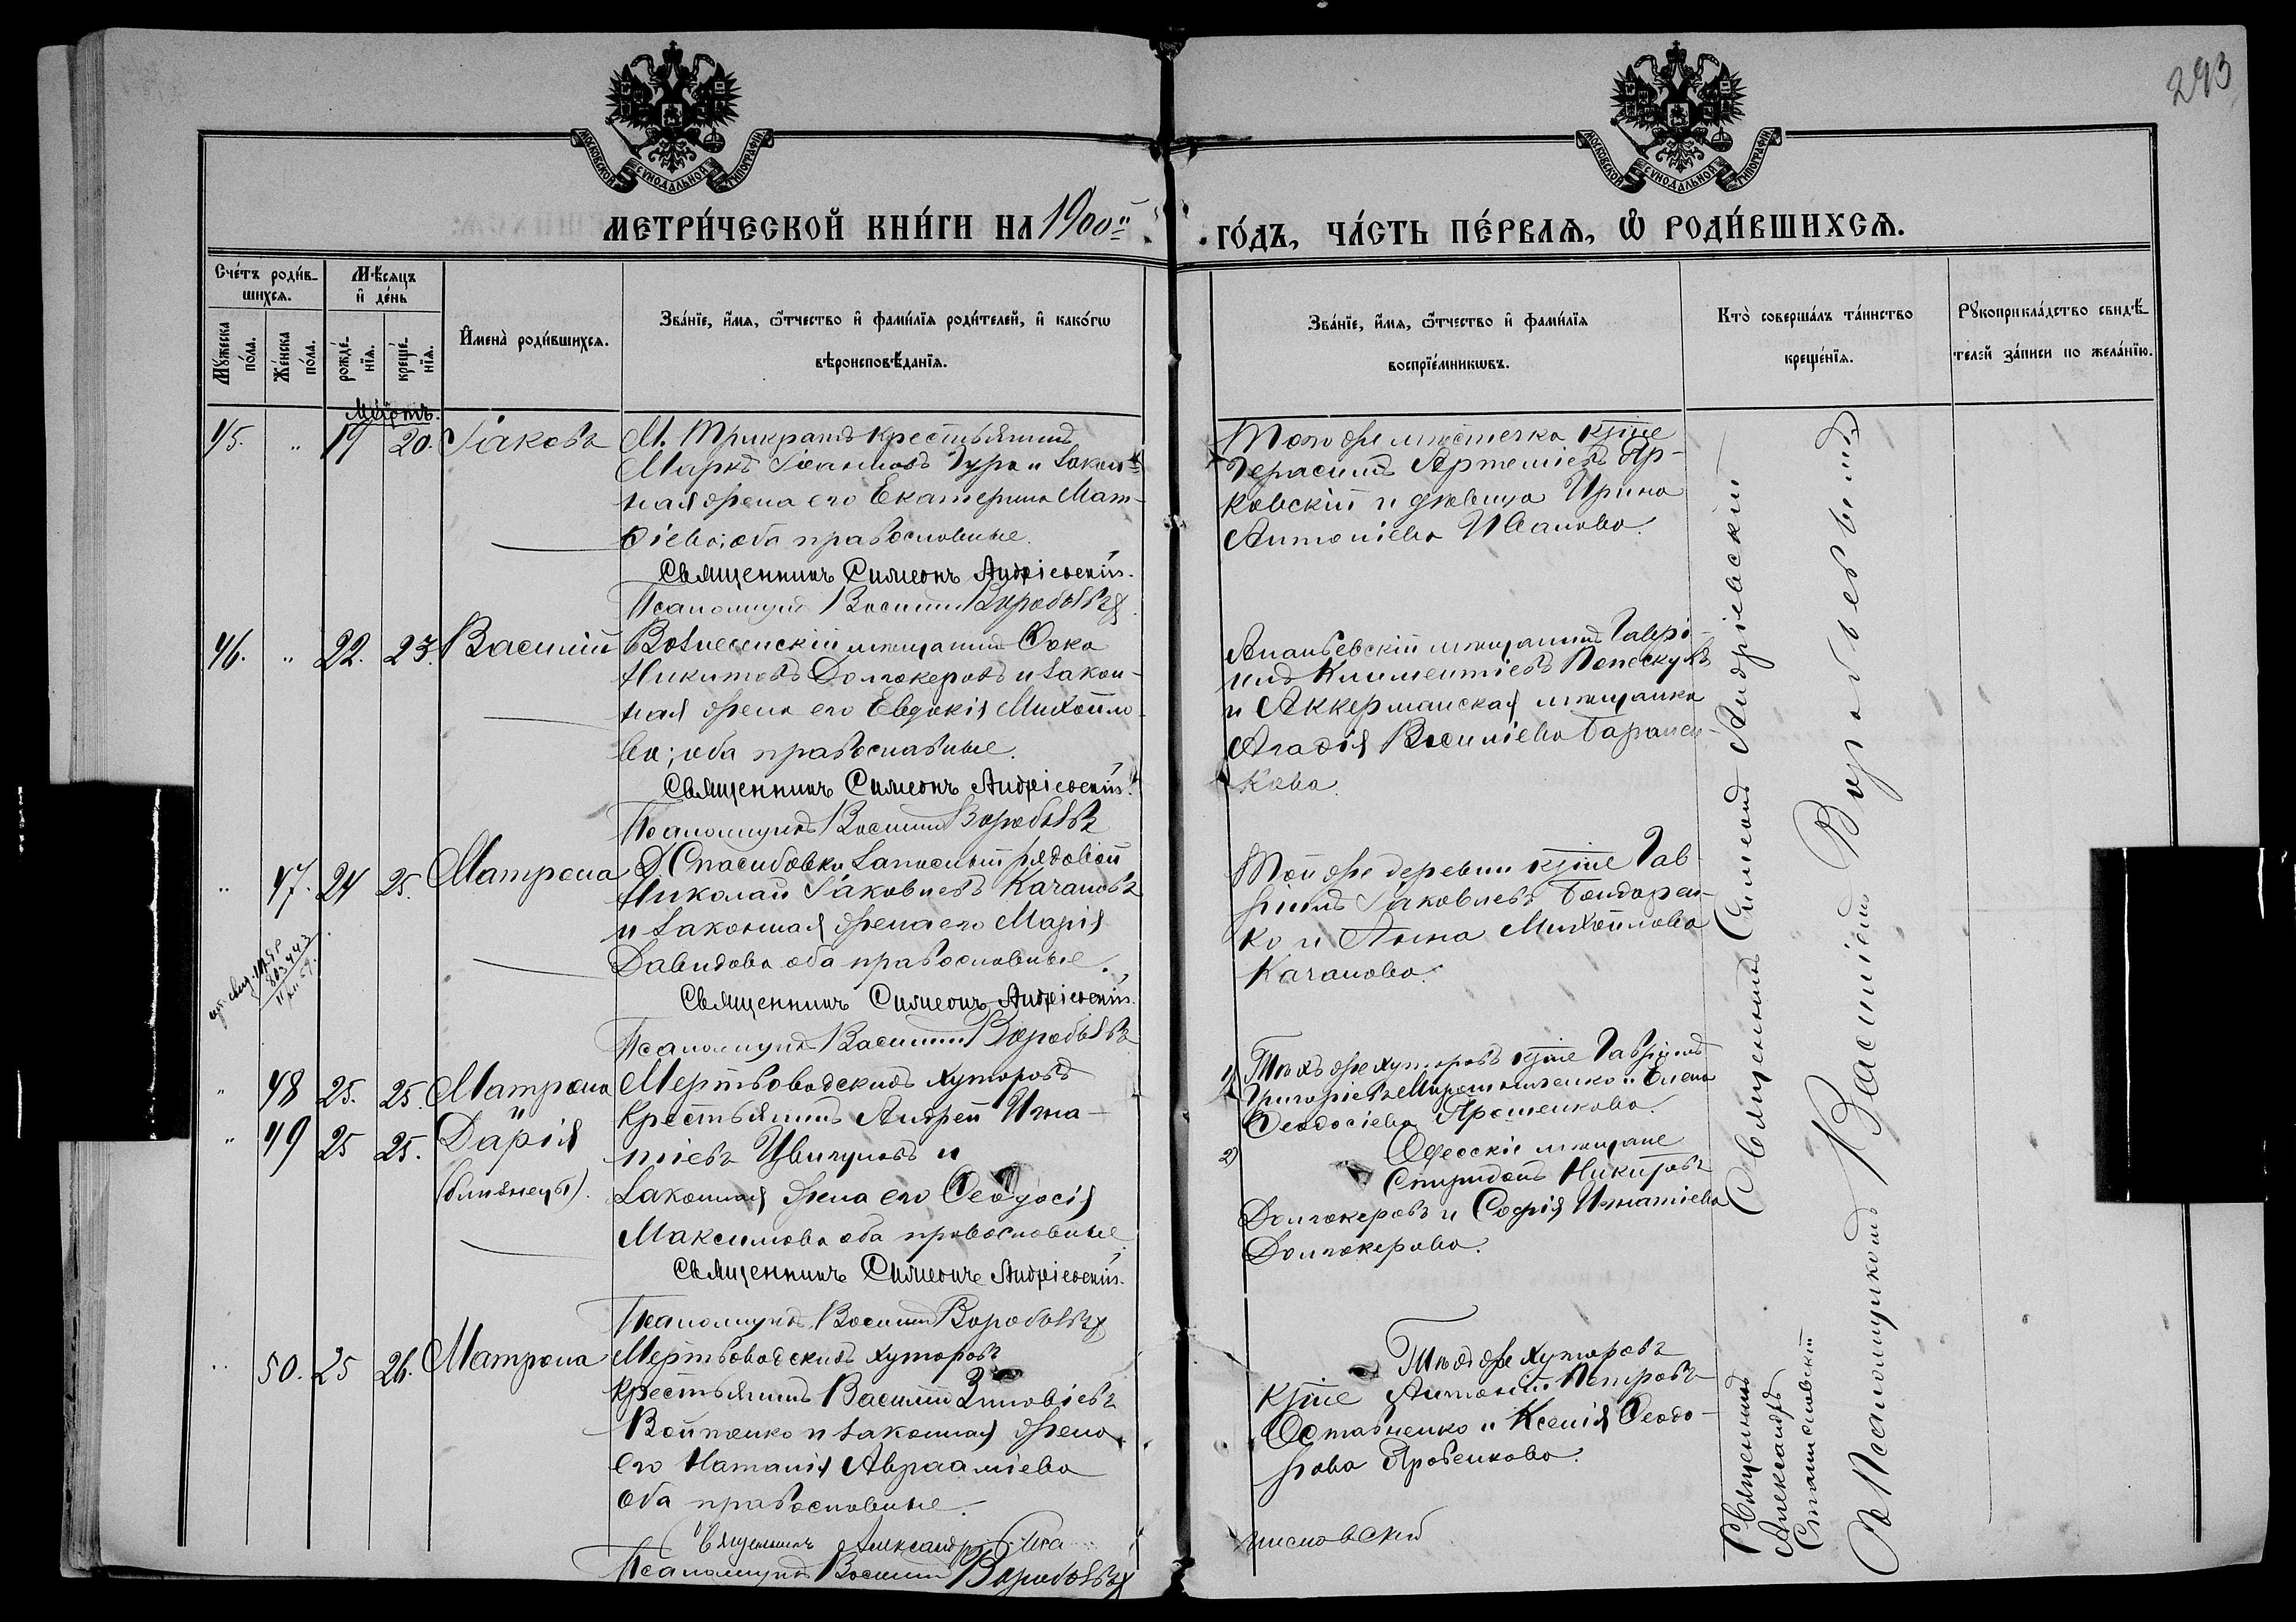 293
МОСКОВСКОЙ СѴНОДАЛЬНОЙ ТИПОГРАФІИ
МОСКОВСКОЙ СѴНОДАЛЬНОЙ ТИПОГРАФІИ
МЕТРИ́ЧЕСКОЙ КНИ́ГИ НА 1900й
ГО́ДЪ, ЧА́СТЬ ПЕ́РВАѦ, Ѡ҆ РОДИ́ВШИХСѦ.
Сче́тъ роди́в-
шихсѧ.
Мѣ́сяцъ
и҆ де́нь
Мꙋ́жеска по́ла.
Же́нска по́ла.
рожде́нїѧ.
креще́нїѧ.
И҆мена̀ роди́вшихсѧ.
Зва́нїе, и҆́мѧ, ѻ҆́тчество и҆ фами́лїѧ роди́телей, и҆ како́гѡ
вѣроисповѣ́данїѧ.
Зва́нїе, и҆́мѧ, ѻ҆́тчество и҆ фами́лїѧ
воспрїе́мникѡвъ.
Кто̀ соверша́лъ та́инство
креще́нїѧ.
Рꙋкоприкла́дство свидѣ́-
телей за́писи по жела́нїю.
Мартъ.
45. " 19 20. Іаковъ
М. Трикратъ крестьянинъ
Маркъ Іоанновъ Гура и закон-
ная жена его Екатерина Мат-
ѳіева; оба православные.
Священникъ Симеонъ Андріевскій.
Псаломщикъ Василій Воробьевъ
Того же мѣстечка кр-не
Герасимъ Артеміевъ Яр-
ковскій и дѣвица Ирина
Антоніева Иванова.
46. " 22. 23. Василій
Вознесенскій мѣщанинъ Ѳока
Никитовъ Долгожеровъ и закон-
ная жена его Евдокія Михайло-
ва; оба православные.
Священникъ Симеонъ Андріевскій.
Псаломщикъ Василій Воробьевъ
Ананьевскій мѣщанинъ Гаврі-
илъ Климентіевъ Попескулъ
и Аккерманская мѣщанка
Агафія Васильева Баранен-
кова.
" 47. 24 25. Матрона
Д. Спасибовки запасный рядовой
Николай Іаковлевъ Качановъ
и законная жена его Марія
Давидова оба православные.
Священникъ Симеонъ Андріевскій.
Псаломщикъ Василій Воробьевъ
Той же деревни кр-не Гав-
ріилъ Іаковлевъ Бондарен-
ко и Анна Михайлова
Качанова.
" 48 25. 25. Матрона
и
" 49 25 25. Дарія
(близнецы).
Мертвоводскихъ хуторовъ
крестьянинъ Андрей Игна-
тіевъ Цвигуновъ и
законная жена его Ѳеодосія
Максимова оба православные.
Священникъ Симеонъ Андріевскій.
Псаломщикъ Василій Воробьевъ
1) Тѣхъ же хуторовъ кр-не Гавріилъ
Григоріевъ Мирошниченко и Елена
Ѳеодосіева Ярошенкова.
2) Одесскіе мѣщане
Спиридонъ Никитовъ
Долгожеровъ и Софія Игнатіева
Долгожерова.
" 50. 25 26. Матрона
Мертвоводскихъ хуторовъ
крестьянинъ Василій Зиновіевъ
Войтенко и законная жена
его Наталія Авраамiева
оба православные.
Священникъ Александръ Ста
нисловскій
Псаломщикъ Василій Воробьевъ
Тѣхъ же хуторовъ
кр-не Антоній Петровъ
Оставненко и Ксенія Ѳеодо-
рова Яровенкова.
Священникъ Симеонъ Андріевскій
Священникъ
Александръ
Станисловскій
Псаломщикомъ Василіемъ Воробьевымъ